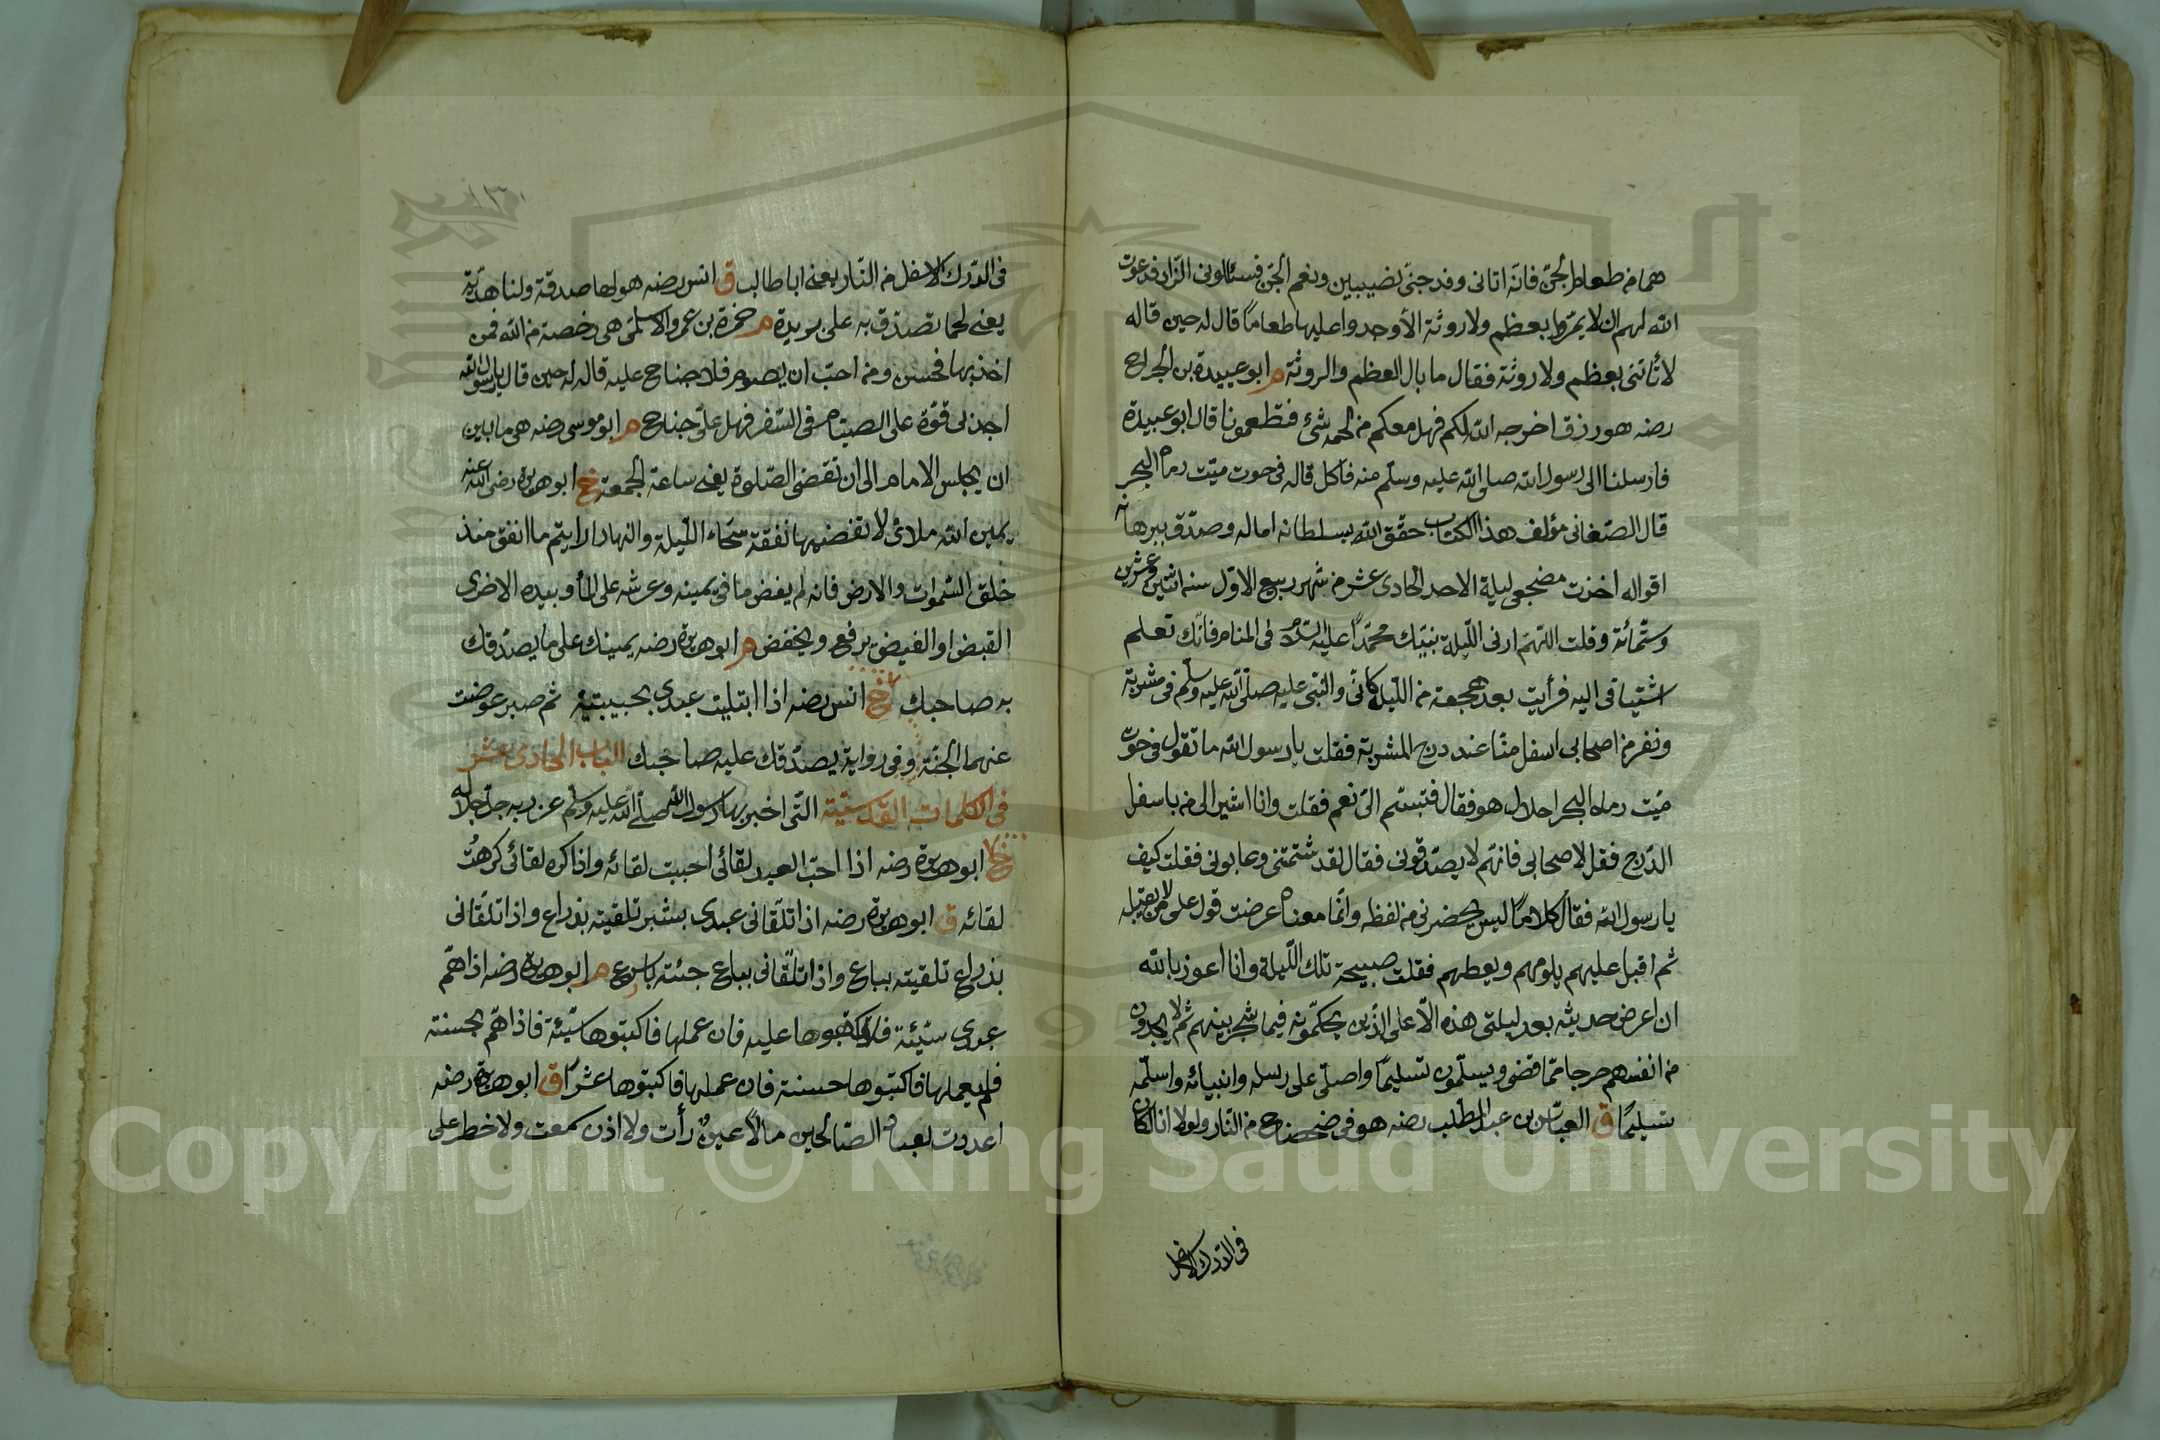 هما من طعام الجن فانه اتانى وفد جنى نصيبين ونعم الجن فسئالونى الزاد فدعوت
الله لهم ان لا يمروا بعظم ولا روثة الا وجدوا عليها طعاما قال له حين قال له
لا تأتنى بعظم ولا روثة فقال ما بال العظم والروثة م ابو عبيدة بن الجراح
رضه هو رزق اخرجه الله لكم فهل معكم من لحمه شئ فتطعمونا قال ابو عبيدة
فارسلنا الى رسول الله صلى الله عليه وسلم منه فاكل قاله فى حوت ميت رماه البحر
قال الصغانى مؤلف هذا الكتاب حقق الله بسلطانه اماله وصدق ببرهانه
اقواله اخذت مضجعى ليلة الاحد الحادى عشر من شهر ربيع الاول سنه اثنين وعشرين
وستمائة وقلت اللهم ارنى الليلة نبيك محمدا عليه السلام فى المنام فانك تعلم
اشتياقى اليه فرأيت بعد هجعة من الليل كانى والنبى عليه صلى الله عليه وسلم فى مشربة
ونفر من اصحابى اسفل منا عند درج المشربة فقلت يا رسول الله ما تقول فى حوت
ميت رماه البحر احلال هو فقال فتبسم الى نعم فقلت وانا اشير الى من باسفل
الدرج فقل لاصحابى فانهم لا يصدقونى فقال لقد شتمتنى وعابونى فقلت كيف
يا رسول الله فقال كلاما ليس يحضرنى من لفظه وانما معناه عرضت قول على من لا يقبله
ثم اقبل عليهم يلومهم ويعظهم فقلت صبيحة تلك الليلة وانا اعوذ بالله
ان اعرض حديثه بعد ليلتى هذه الا على الذين يحكمونه فيما شجر بينهم ثم لا يجدون
من انفسهم حرجا مما قضى ويسلمون تسليما واصلى على رسله وانبيائه واسلمه
تسليما ق العباس بن عبد المطلب رضه هو فى ضحضاح من النار ولولا انا لكان
فى الدرك الاسفل
١٣٠
فى الدرك الاسفل من النار يعنى ابا طالب ق انس رضه هو لها صدقة ولنا هدية
يعنى لحما تصدق به على بريدة م حمزة بن عمرو الاسلمى هى رخصة من الله فمن
اخذ بها فحسن ومن احب ان يصوم فلا جناح عليه قاله له حين قال يا رسول الله
اجد لى قوة على الصيام فى السفر فهل على جناح م ابو موسى رضه هى ما بين
ان يجلس الامام الى ان تقضى الصلوة يعنى ساعة الجمعة خ ابو هريرة رضى الله عنه
يمين الله ملائ لا تغضيها نفقة سحاء الليلة والنهار ارايتم ما انفق منذ
خلق السموات والارض فانه لم يغض ما فى يمينه وعرشه على الماء وبيده الاخرى
القبض او الفيض يرفع ويخفض م ابو هريرة رضه يمينك على ما يصدقك
به صاحبك خ انس رضه اذا ابتليت عبدى بحبيبتيه ثم صبر عوضت
عنهما الجنة وفى رواية يصدقك عليه صاحبك الباب الحادى عشر
فى الكلمات القدسيّة التى اخبر بها رسول الله صلى الله عليه وسلم عن ربه جل جلاله
خ ابو هريرة رضه اذا احب العبد لقائى احببت لقائه واذا كره لقائى كرهت
لقائه ق ابو هريرة رضه اذا تلقانى عبدى بشبر تلقيته بذراع واذا تلقانى
بذراع تلقيته بباع واذا تلقانى بباع جئته باسرع م ابو هريرة رضه اذا هم
عبدى سيئة فلا تكتبوها عليه فان عملها فاكتبوها سيئة فاذا هم بحسنة
فلم يعملها فاكتبوها حسنة فان عملها فاكتبوها عشرا ق ابو هريرة رضه
اعددت لعباد الصالحين ما لا عين رأت ولا اذن سمعت ولا خطر على
Copyright © King Saud University